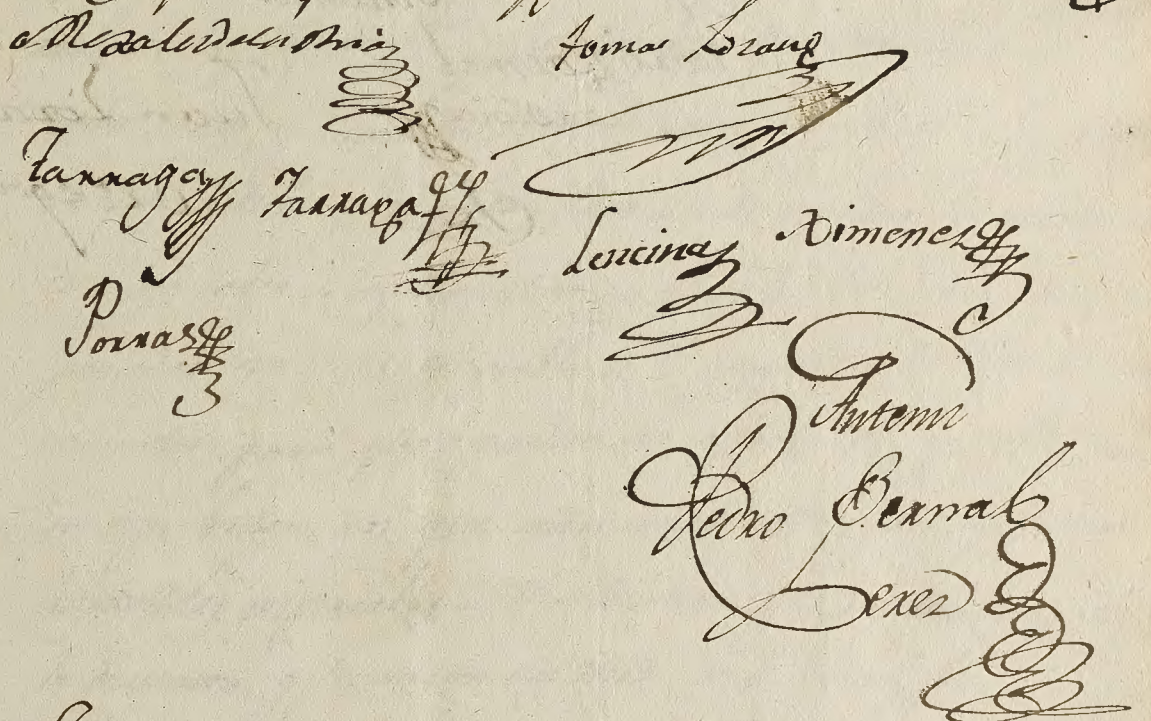 Tomas Lozano
Tarraga Tarraga
Lencina Ximenez
Porras
Ante mi
Pedro Bernal
Perez